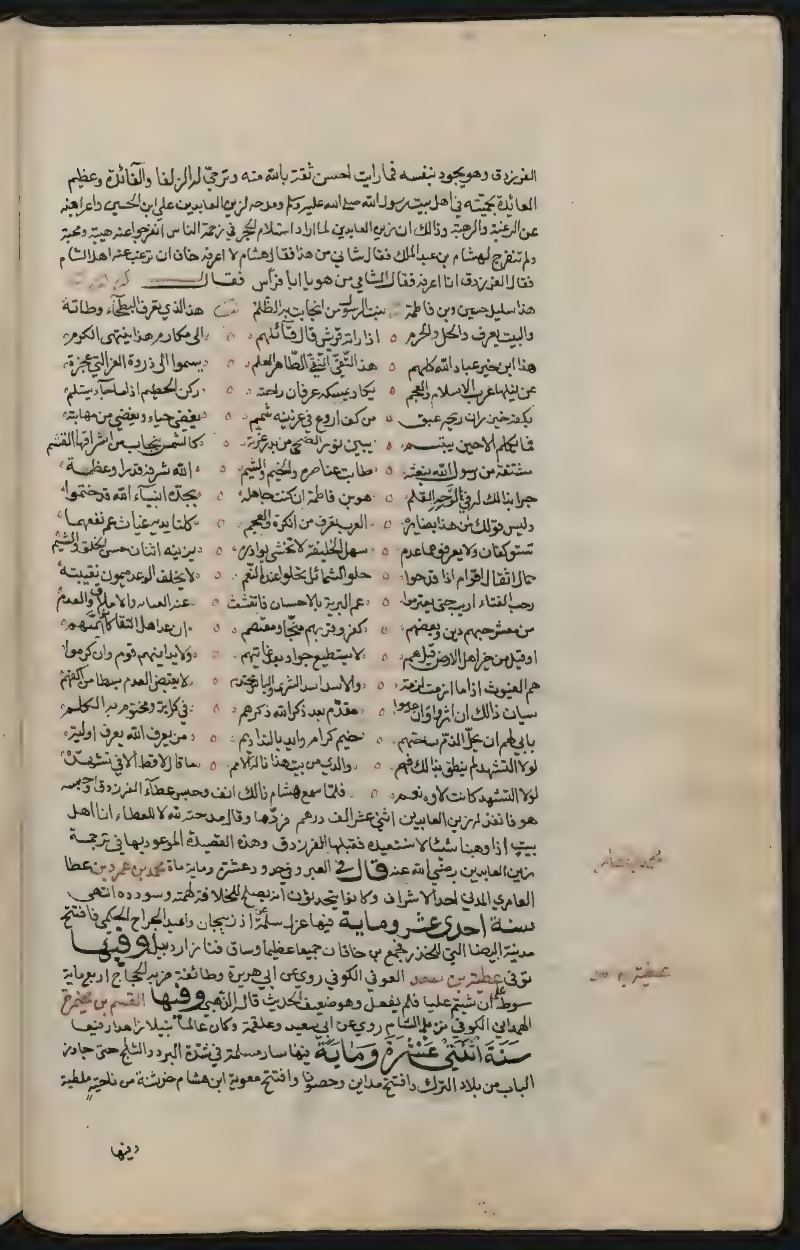 الفرزدق وهو يجود بنفسه فما رايت احسن ثقة بالله منه وترجى له الزلفا والفائدة وعظيم
العائدة بحميته في اهل بيت رسول الله صلى الله عليه وسلم ومدحه لزين العابدين علي ابن الحسين واعرابه
عن الرغبة والرهبة وذالك ان زين العابدين لما اراد استلام الحجر في زحمة الناس انفرجوا عنه هيبة ومحبة
ولم تنفرج لهشام بن عبد الملك فقال شامي من هذا فقال هشام لا اعرفه خاف ان يرغب عنه اهل الشام
فقال الفرزدق انا اعرفه فقال الشامي من هو يا ابا فراس فقال
هذا سليل حسين وبن فاطمة بنت الرسول من انجابت به الظلم هذا الذي يعرف البطحاء وطاته
والبيت يعرفه والحل والحرم اذا راته قريش قال قائلهم الى مكارم هذا ينتهى الكرم
هذا ابن خير عباد الله كلهم هذا التقي النقي الطاهر العلم يسموا الى ذروة العز التي عجزة
عن نيلها عرب الاسلام والعجم يكاد يمسكه عرفان راحته ركن الحطيم اذا ما جاء يستلم
بكفه خيزران ريحه عبق من كف اروع في عرنينه شمم يغضي حياء ويغضي من مهابته
فما يكلم الا حين يبتسم يبين نور الضحى من غرته كالشمس ينجاب من اشراقها القتم
مشتقة من رسول الله نبعته طابت عناصره والخيم والشيم الله شرفه قدرا وعظمه
جرا بذالك له في لوحه القلم هو بن فاطمة ان كنت جاهله بجده انبياء الله قد ختموا
وليس قولك من هذا بضايره العرب تعرف من انكرة والعجم كلتا يديه غياث عم نفعهما
تستوكفان ولا يعروهما عدم سهل الخليقة لا تخشى بوادره يزينه اثنان حسن الخلق والشيم
حمال اثقال اقوام اذا فدحوا حلو الشمائل تحلو عنده النعم لا يخلف الوعد ميمون نقيبته
رحب الفناء اريب حين يعتزم عم البرية بالاحسان فانقشعت عنه الاملاق والعدم
من معشر حبهم دين وبغضهم كفر وقربهم منجا ومعتصم ان عد اهل التقا كانوا ائمتهم
او قيل من خير اهل الارض قيل هم لا يستطيع جواد بعد غايتهم ولا يدانيهم قوم وان كرموا
هم الغيوث اذا ما ازمت ازمة والاسد اسد الشرى والباس محتدم لا يقبض العدم بسطا من اكفهم
سيان ذالك ان اثروا وان عدموا مقدم بعد ذكر الله ذكرهم في كل بر ومختوم به الكلم
يابى لهم ان يحل الذم ساحتهم خيم كرام وايد بالندا ديم من يعرف الله يعرف اولية
لولا التشهد لم ينطق بذالك فم والدين من بيت هذا ناله الامم ما قال لا قط الا في تشهده
لولا التشهد كانت لاؤه نعم فلما سمع هشام ذالك انف وحبس عطاء الفرزدق وحبسه
هو فانفذ له زين العابدين اثني عشر الف درهم فردها وقال مدحته لله لا للعطاء انا اهل
بيت اذا وهبنا شيئا لا نستعيده فقبلها الفرزدق وهذه القصيدة الموعود بها في ترجمة
زين العابدين رضي الله عنه قال في العبر وفي حدود عشرة وماية مات محمد بن عمرو بن عطا
العامري المدني احد الاشراف وكانوا يتحدثون انه يصلح للخلافة لهمته وسودده انتهى
سنة احدى عشر وماية فيها عزل مسلمة عن اذربيجان واعيد الجراح الحكمي فافتتح
مدينة البيضا التي للخزر فجمع بن خاقان جميعا عظيما وساق فنازل اردبيل وفيها
توفي عطية بن سعد العوفي الكوفي روي عن ابي هريرة وطائفة ضربه الحجاج اربع ماية
سوط على ان شتم عليا فلم يفعل وهو ضعيف الحديث قاله الذهبي وفيها القسم بن مخيمرة
الهمداني الكوفي نزيل الشام روي عن ابي سعيد وعلقمة وكان عالما نبيلا زاهدا رفيعا
سنة اثنتي عشرة وماية فيها سار مسلمة في شدة البرد والثلج حتى جاوز
الباب من بلاد الترك وافتتح مداين وحصونا وافتتح معوية ابن هشام خرشنة من ناحية ملطية
وفيها
عطية بن سعد